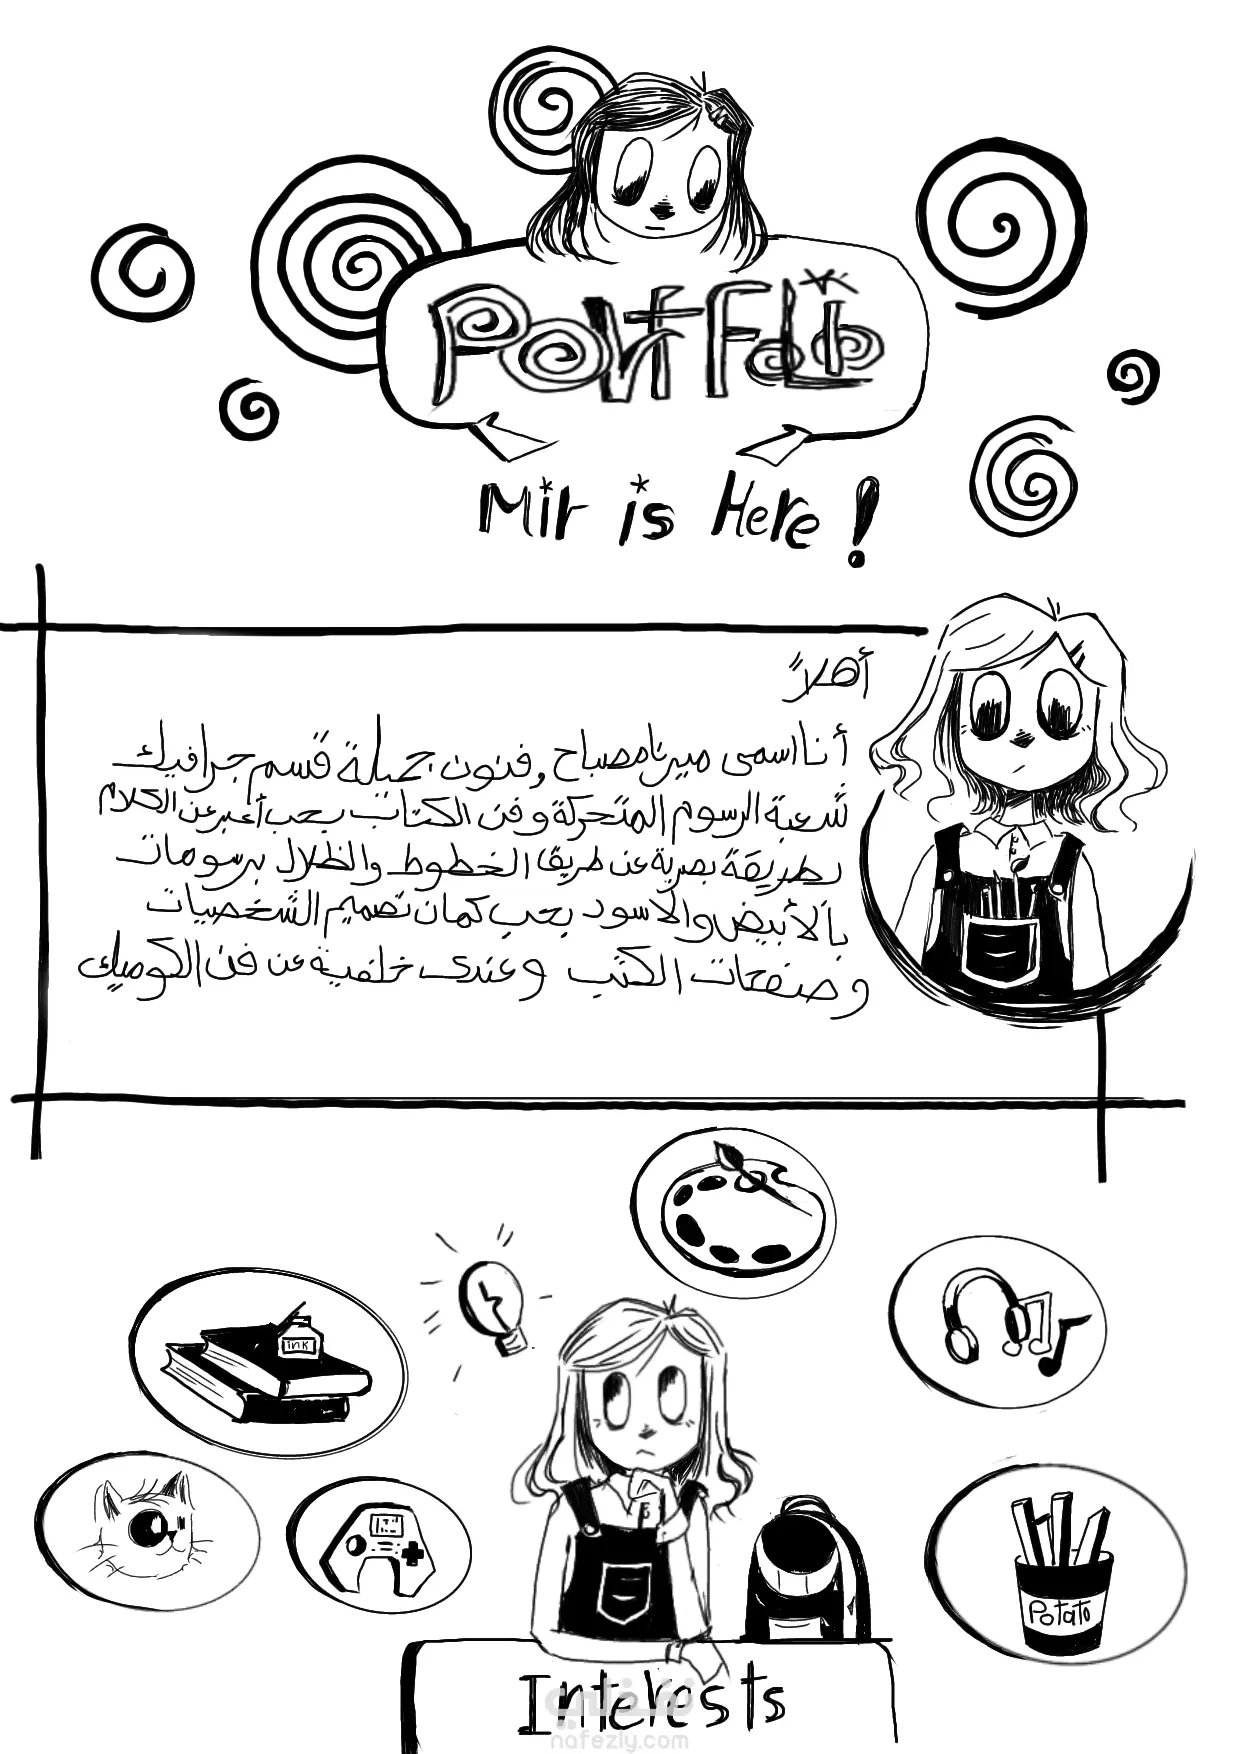 PortFolio
Mir is Here!
أهلاً
أنا اسمى ميرنا مصباح وفنون جميلة قسم جرافيك
شعبة الرسوم المتحركة وفن الكتاب بحب أعبر عن الكلام
بطريقة بصرية عن طريق الخطوط والظلال برسومات
بالأبيض والاسود بحب كمان تصميم الشخصيات
وصفحات الكتب وعندى خلفية عن فن الكوميك
ink
Potato
Interests
نفذلي
nafezly.com